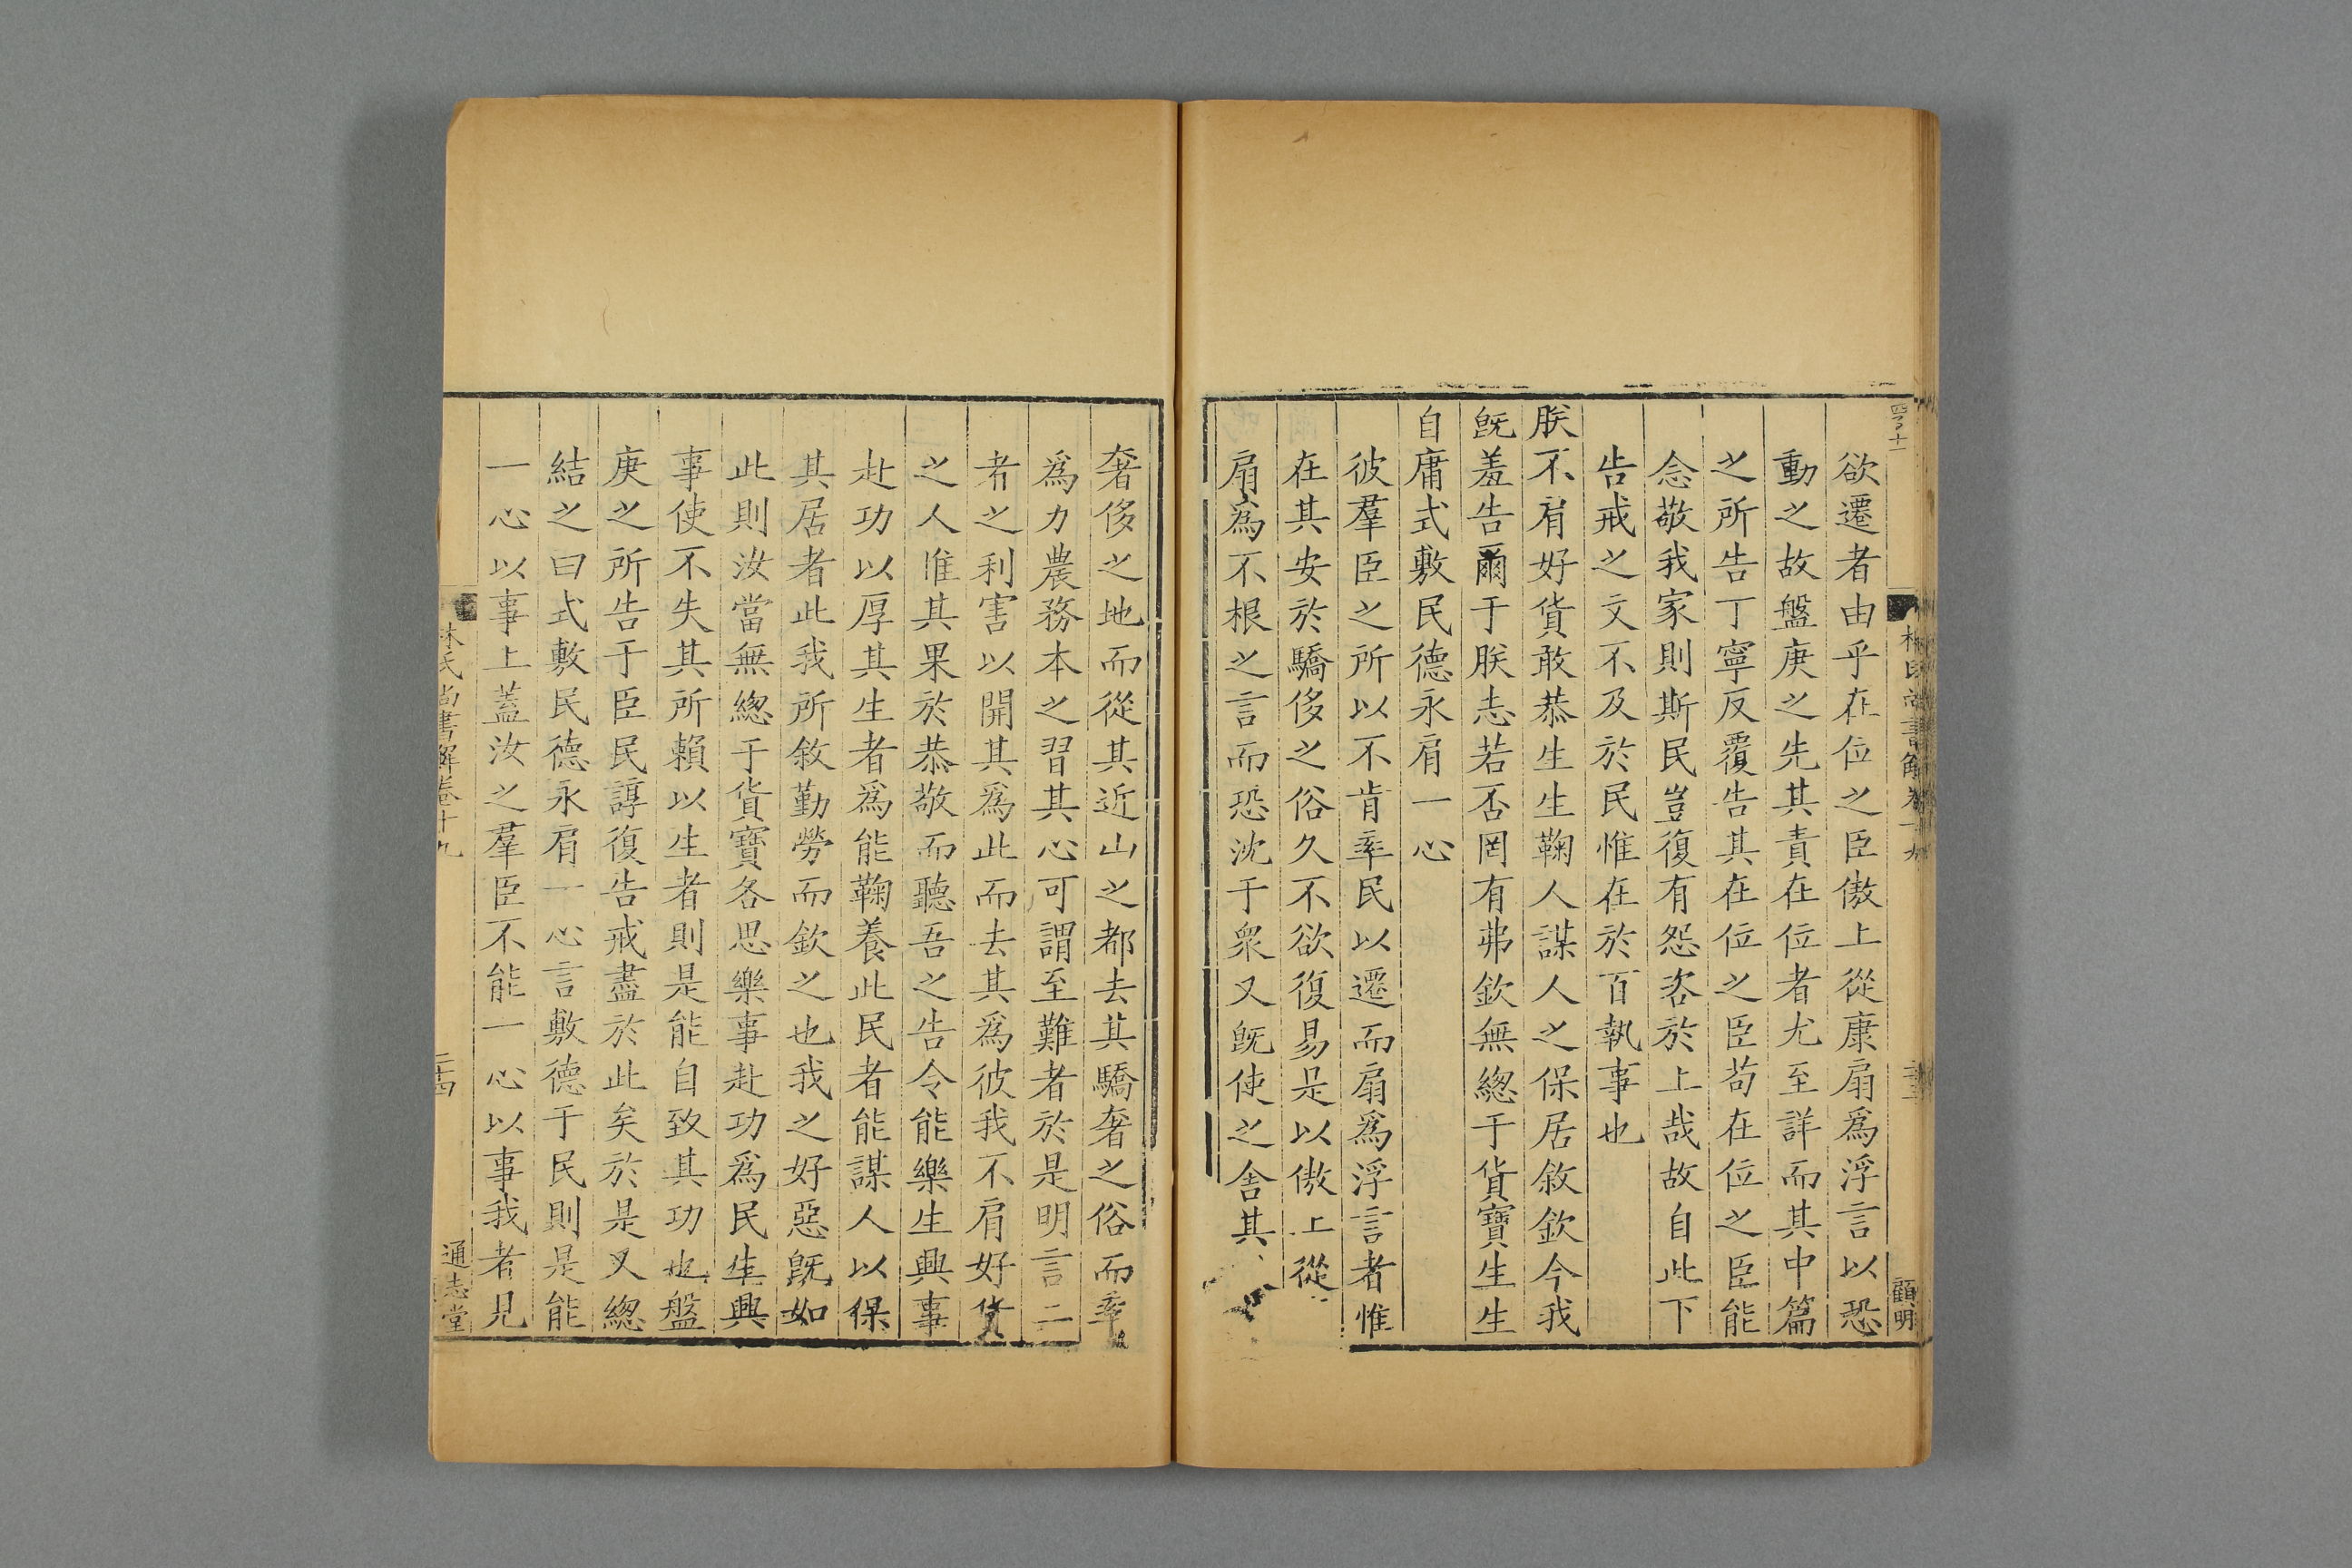 欲遷者由乎在位之臣傲上從康扇爲浮言以恐
動之故盤庚之先其責在位者尤至詳而其中篇
之所告丁寧反覆告其在位之臣苟在位之臣能
念敬我家則斯民豈復有怨咨於上哉故自此下
告戒之文不及於民惟在於百執事也
朕不肩好貨敢恭生生鞠人謀人之保居敘欽今我
旣羞告爾于朕志若否罔有弗欽無緫于貨寶生生
自庸式敷民德永肩一心
彼羣臣之所以不肯率民以遷而扇爲浮言者惟
在其安於驕侈之俗久不欲復易是以傲上從
扇爲不根之言而恐沈于衆又旣使之舍其
顧明
奢侈之地而從其近山之都去其驕奢之俗而率
爲力農務本之習其心可謂至難者於是明言二
者之利害以開其爲此而去其爲彼我不肩好貨
之人惟其果於恭敬而聽吾之告令能樂生興事
赴功以厚其生者爲能鞠養此民者能謀人以保
其居者此我所敘勤勞而欽之也我之好惡旣如
此則汝當無緫于貨寶各思樂事赴功爲民生興
事使不失其所賴以生者則是能自致其功也盤
庚之所告于臣民諄復告戒盡於此矣於是又緫
結之曰式敷民德永肩一心言敷德于民則是能
一心以事上蓋汝之羣臣不能一心以事我者見
林氏尚書解卷十九
二十四
通志堂